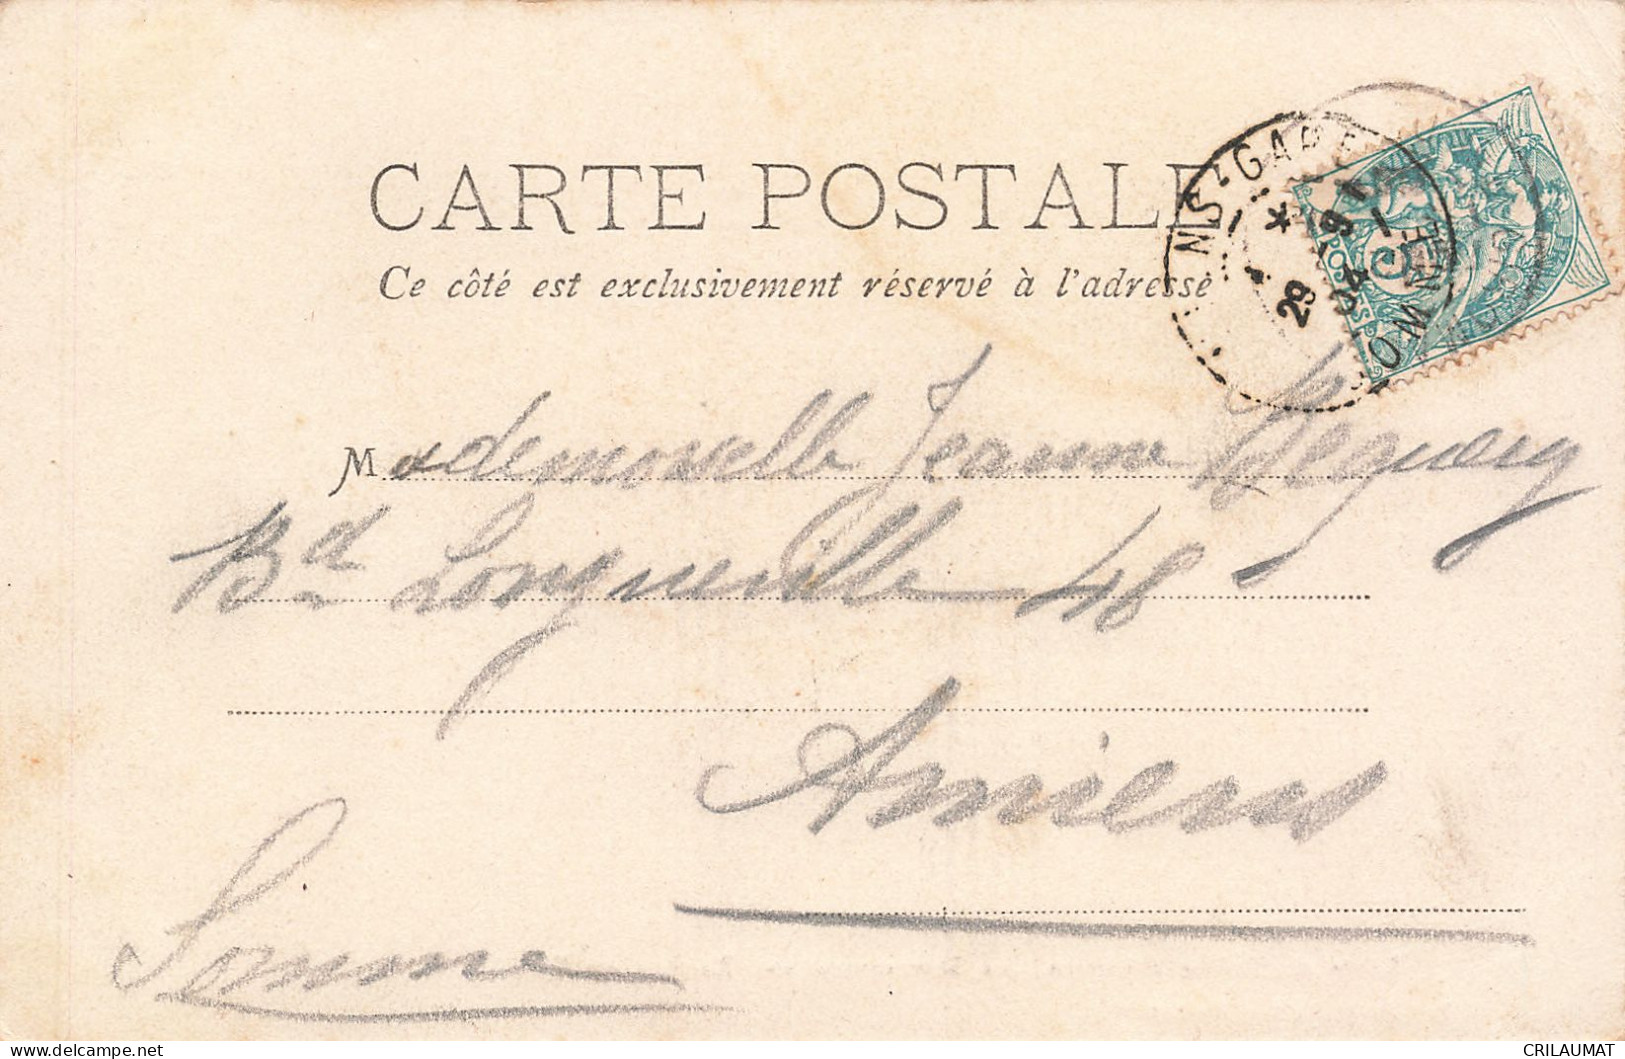 CARTE POSTALE
Ce côté est exclusivement réservé à l'adresse
NS-GARE
SOMME
29
04
POSTES
Mademoiselle Jeanne
Bd Longueville 48
Amiens
Somme
CRILAUMAT